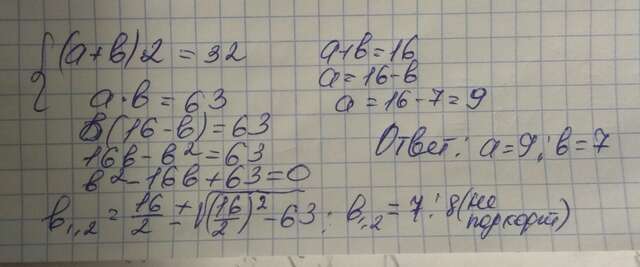 (a+b)·2 = 32
a·b = 63
b(16-b) = 63
16b-b² = 63
b²-16b+63=0
b₁,₂ = 16/2 ± √((16/2)²-63); b₁,₂ = 7; 8 (не подходит)
a+b=16
a=16-b
a=16-7=9
Ответ: a=9; b=7